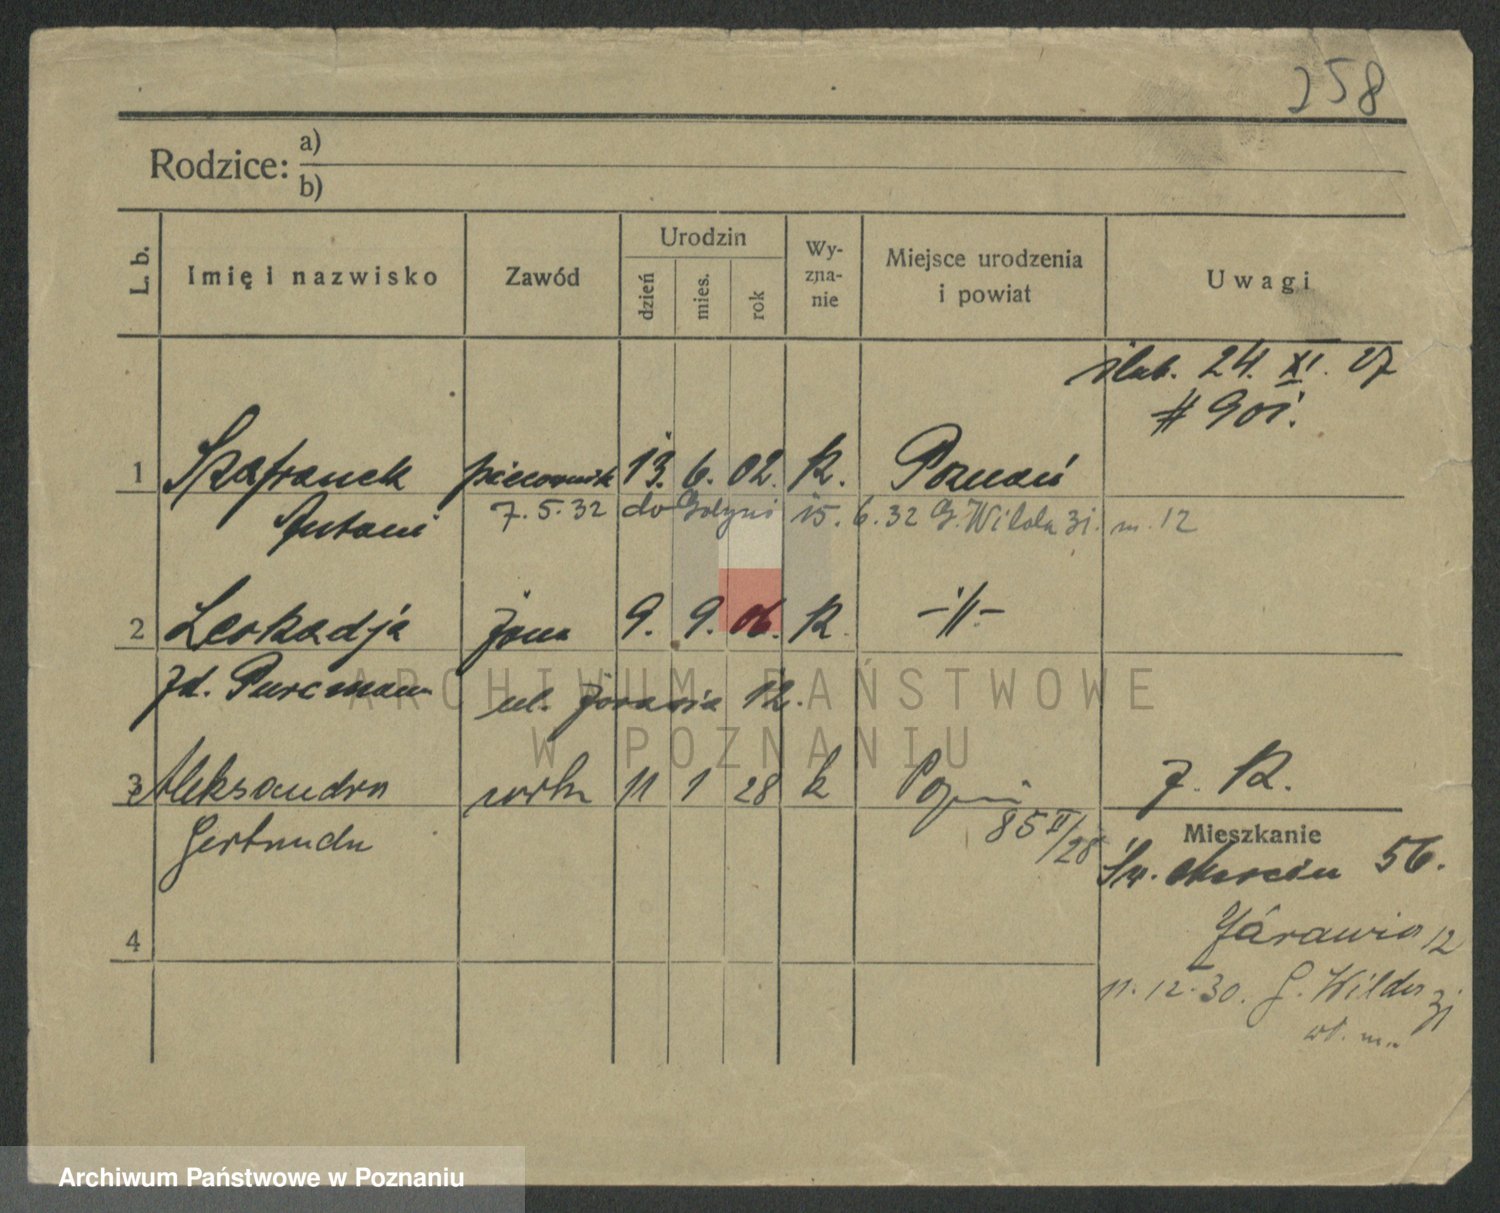 258
Rodzice: a)
b)
L. b. Imię i nazwisko Zawód Urodzin dzień mies. rok Wy-zna-nie Miejsce urodzenia i powiat Uwagi
ślub. 24. XI. 27
# 901.
1 Szafranek 13. 6. 02. R. Poznań
Antoni 7.5.32 do Gdyni 15.6.32 G. Wilda 31. m. 12
2 Leokadja żona 9. 9. 06. R. -"-
zd. Purcmann ul. Żórawia 12.
3 Aleksandra córka 11 1 28 k Pozn
Gertruda 85 II/28
ż. R.
Mieszkanie
Św. Marcin 56.
Żórawia 12
4
11.12.30. G. Wilda 31
ARCHIWUM PAŃSTWOWE
W POZNANIU
Archiwum Państwowe w Poznaniu